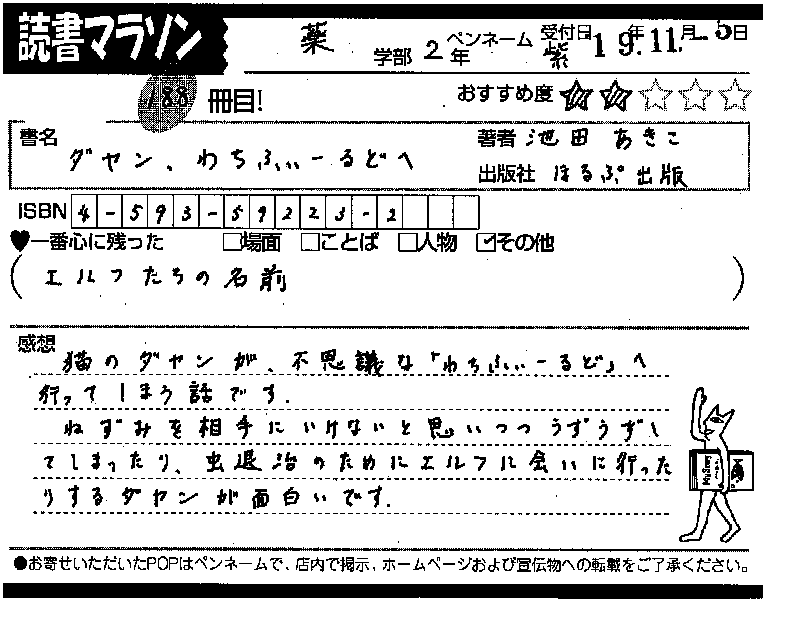 読書マラソン 薬 学部 2 年 ペンネーム 紫 受付日 19年11月-5日
188 冊目! おすすめ度 ★★☆☆☆
書名 ダヤン、わちふぃーるどへ
著者 池田 あきこ
出版社 ほるぷ出版
ISBN 4-593-59223-2
♥一番心に残った □場面 □ことば □人物 ☑その他
(エルフたちの名前)
感想
猫のダヤンが、不思議な「わちふぃーるど」へ
行ってしまう話です。
ねずみを相手にいけないと思いつつうずうずし
てしまったり、虫退治のためにエルフに会いに行った
りするダヤンが面白いです。
●お寄せいただいたPOPはペンネームで、店内で掲示、ホームページおよび宣伝物への転載をご了承ください。